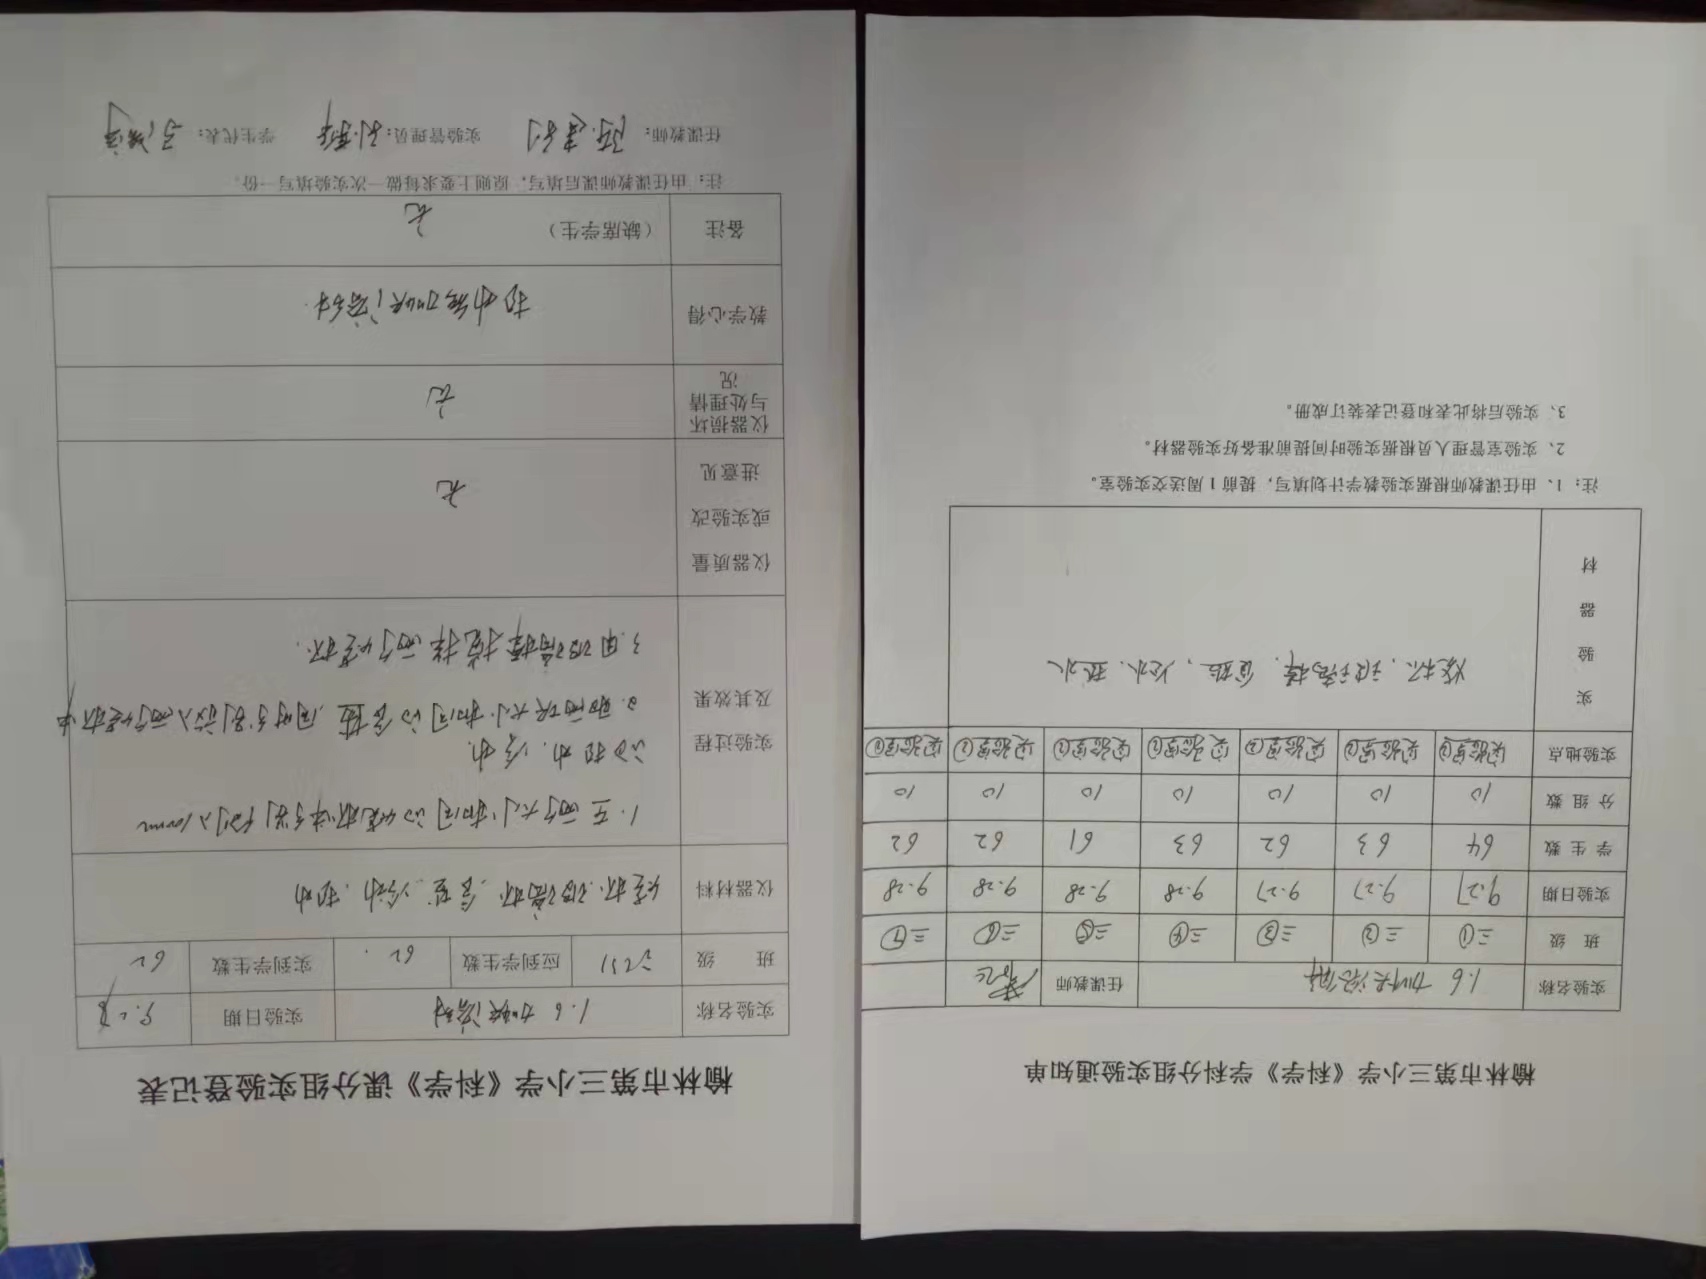 榆林市第三小学《科学》学科分组实验通知单
实验名称 1.6 加快溶解 任课教师
班 级 三① 三② 三③ 三④ 三⑤ 三⑥ 三⑦
实验日期 9.27 9.27 9.27 9.28 9.28 9.28 9.28
学生数 64 63 62 63 61 62 62
分组数 10 10 10 10 10 10 10
实验地点 实验室① 实验室① 实验室① 实验室① 实验室① 实验室① 实验室①
实验器材 烧杯、玻璃棒、食盐、冷水、热水
注：1、由任课教师根据实验教学计划填写，提前1周送交实验室。
2、实验室管理人员根据实验时间提前准备好实验器材。
3、实验后将此表和登记表装订成册。
榆林市第三小学《科学》课分组实验登记表
实验名称 1.6 加快溶解 实验日期 9.28
班 级 应到学生数 62 实到学生数 62
仪器材料 烧杯、玻璃杯、食盐、冷水、热水
实验过程及其效果 1.在两个大小相同的烧杯中分别倒入100mm
的热水、冷水.
2.取两块大小相同的食盐,同时分别放入两个烧杯中
3.用玻璃棒搅拌两个烧杯.
仪器质量或实验改进意见 无
仪器损坏与处理情况 无
教学心得 热水能加快溶解.
备注 （缺席学生） 无
注：由任课教师课后填写，原则上要求每做一次实验填写一份.
任课教师： 实验管理员： 学生代表：